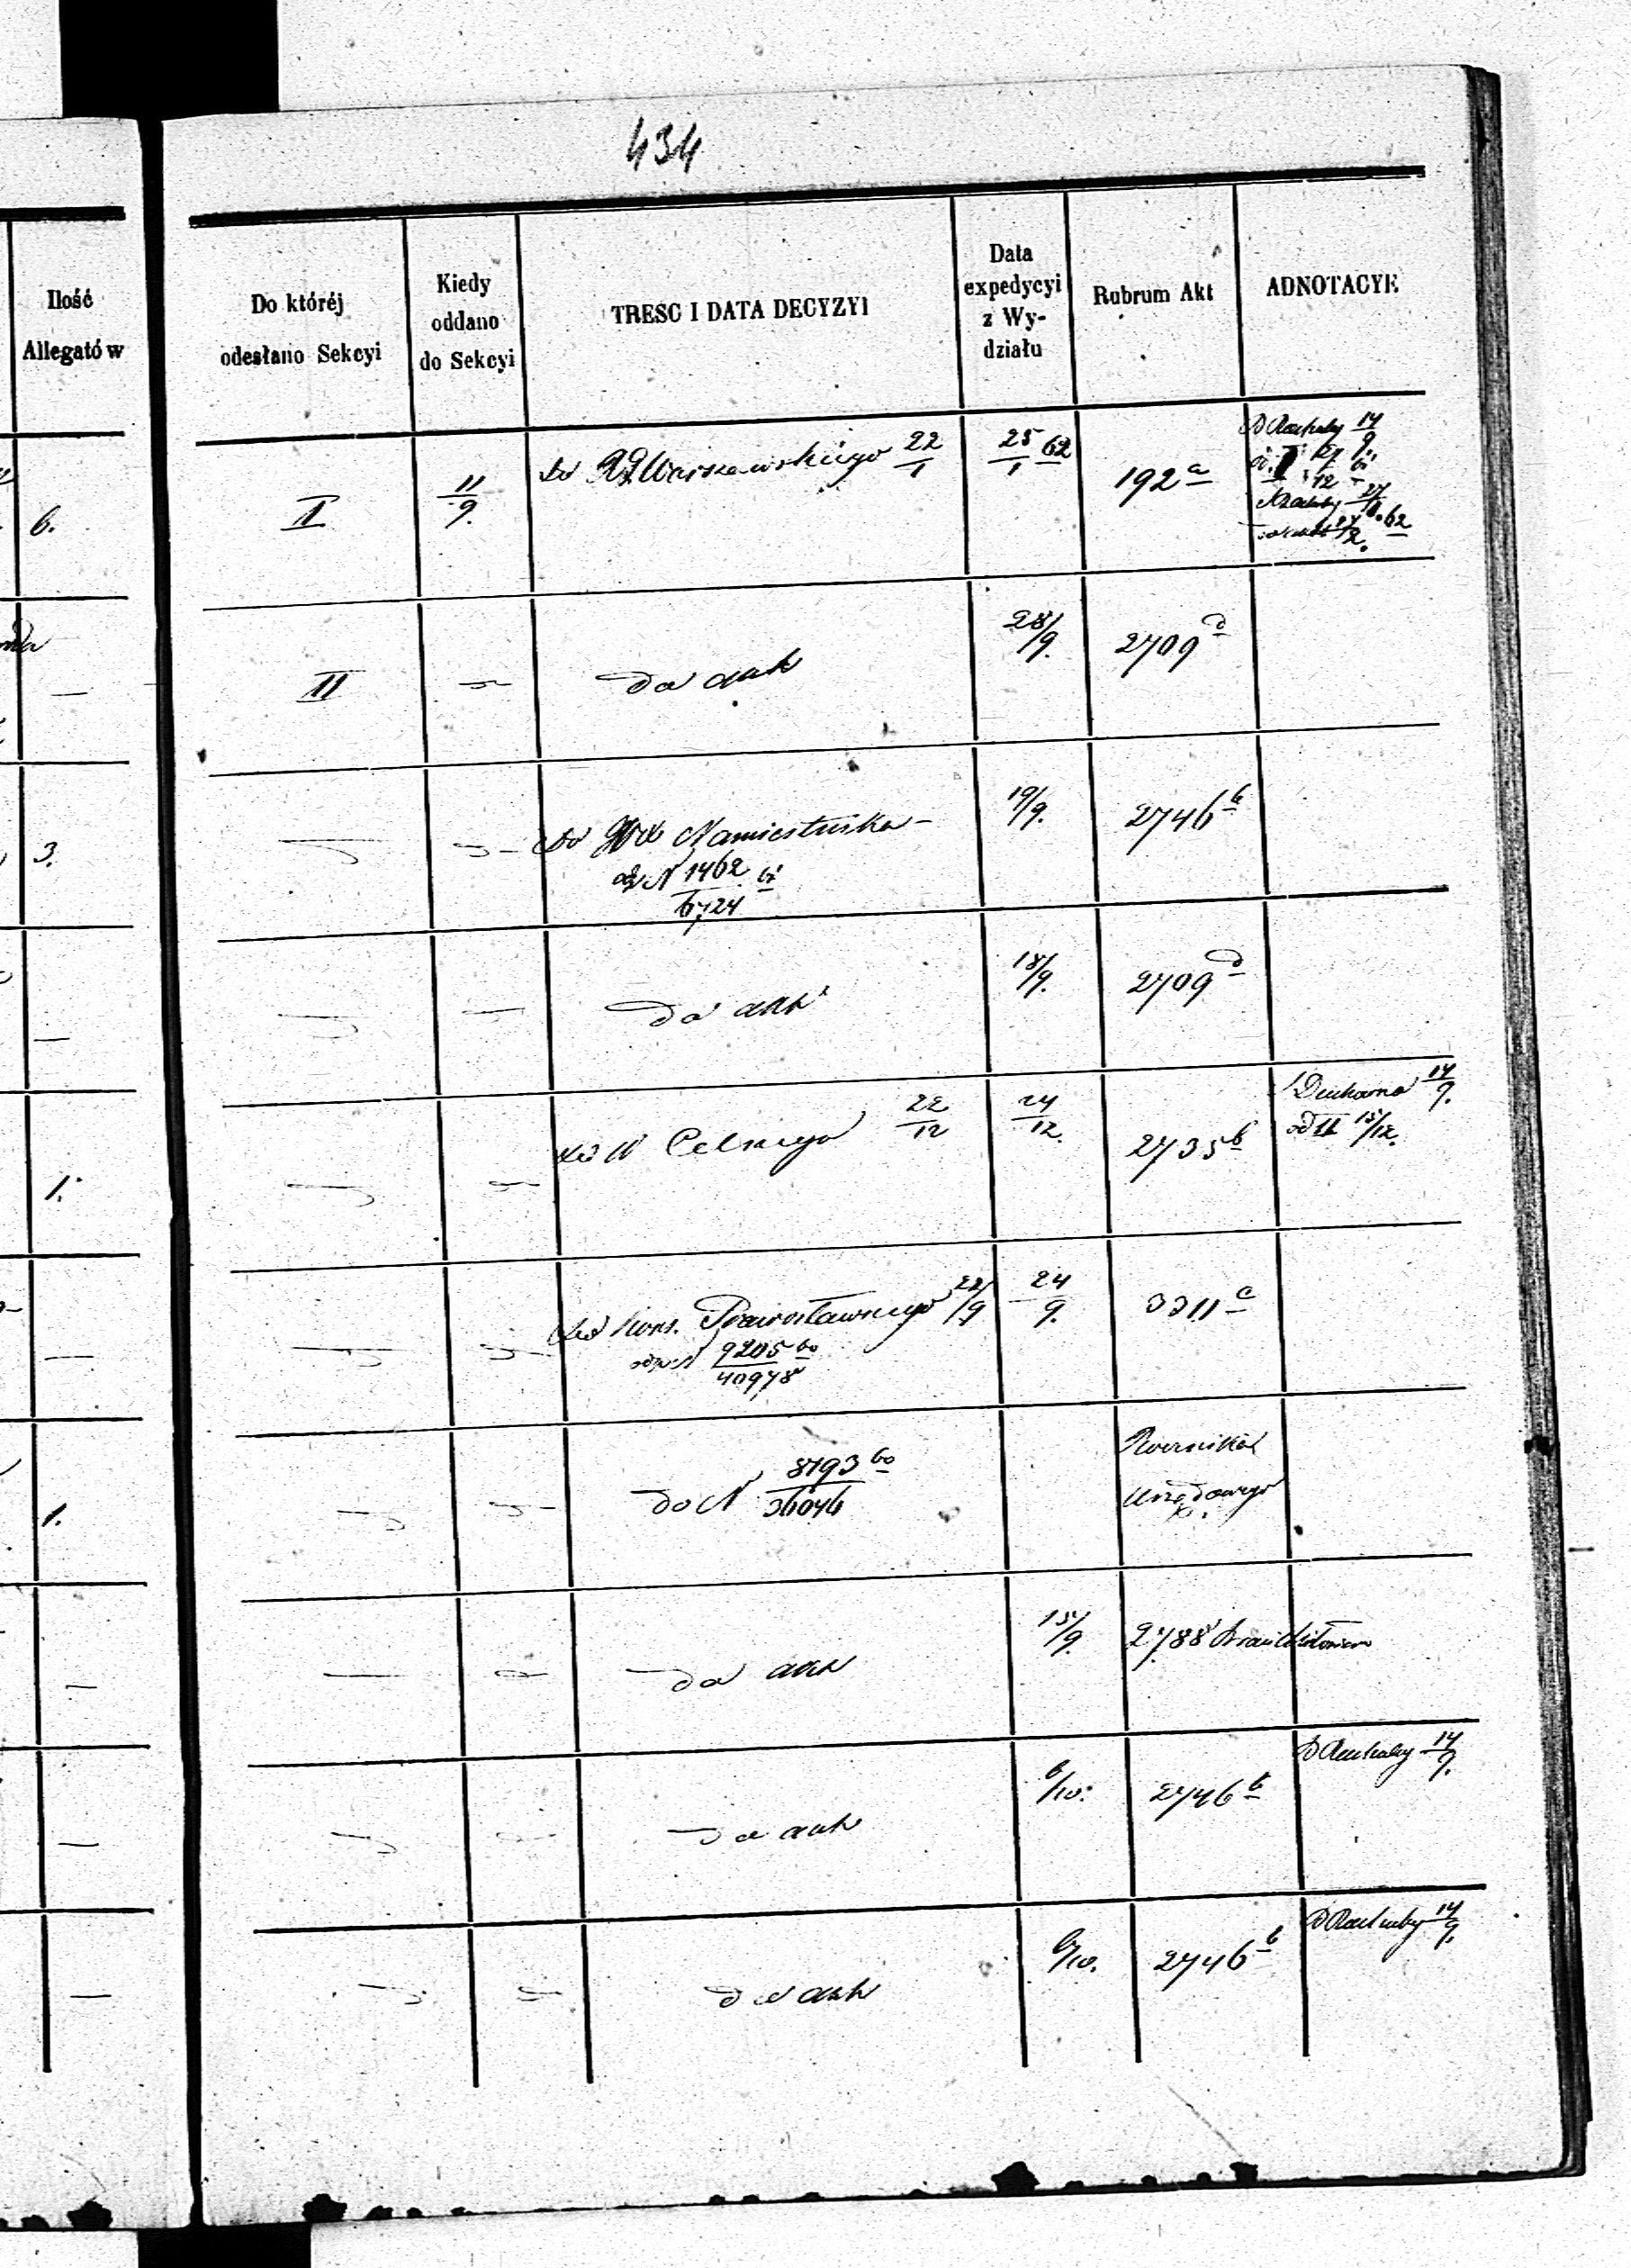 434
Ilość
Allegatów
Do któréj
odesłano Sekcyi
Kiedy
oddano
do Sekcyi
TRESC I DATA DECYZYI
Data
expedycyi
z Wy-
działu
Rubrum Akt
ADNOTACYE
6.
II
11/9.
do RG Warszawskiego 22/1
25/1 62
192 a
14/9.
27/8. 62
—
II
do akt
28/9.
2709 d
3.
do Namiestnika –
N 1462/6724
19/9.
2746 b
—
do akt
18/9.
2709 d
1.
do N Celnego 22/12
24/12.
2735 b
14/9.
od II 15/12.
—
do Kons. Prawosławnego 22/9
N 9205/40978 60
24/9.
3311 c
1.
do N 8793/36046 60
Urzędowego
—
do akt
15/9.
2788
—
do akt
6/10.
2746 b
D Rachuby 14/9.
—
do akt
6/10.
2746 b
D Rachuby 14/9.